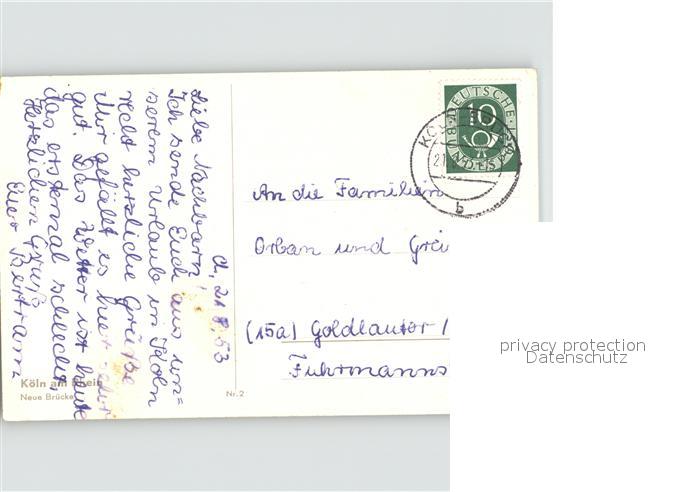 d., 21.8.53
Liebe Nachbarn!
Ich sende Euch aus un=
serem Urlaub in Köln
recht herzliche Grüße
Mir gefällt es hier sehr
gut. Das Wetter ist heute
das erstemal schlecht.
Herzlichen Gruß
Euer Bertram
Köln am Rhein
Neue Brücke
Nr. 2
DEUTSCHE
10
BUNDESPOST
21
b
An die Familien
Orban und
(15a) Goldlauter /
Fuhrmanns
privacy protection
Datenschutz